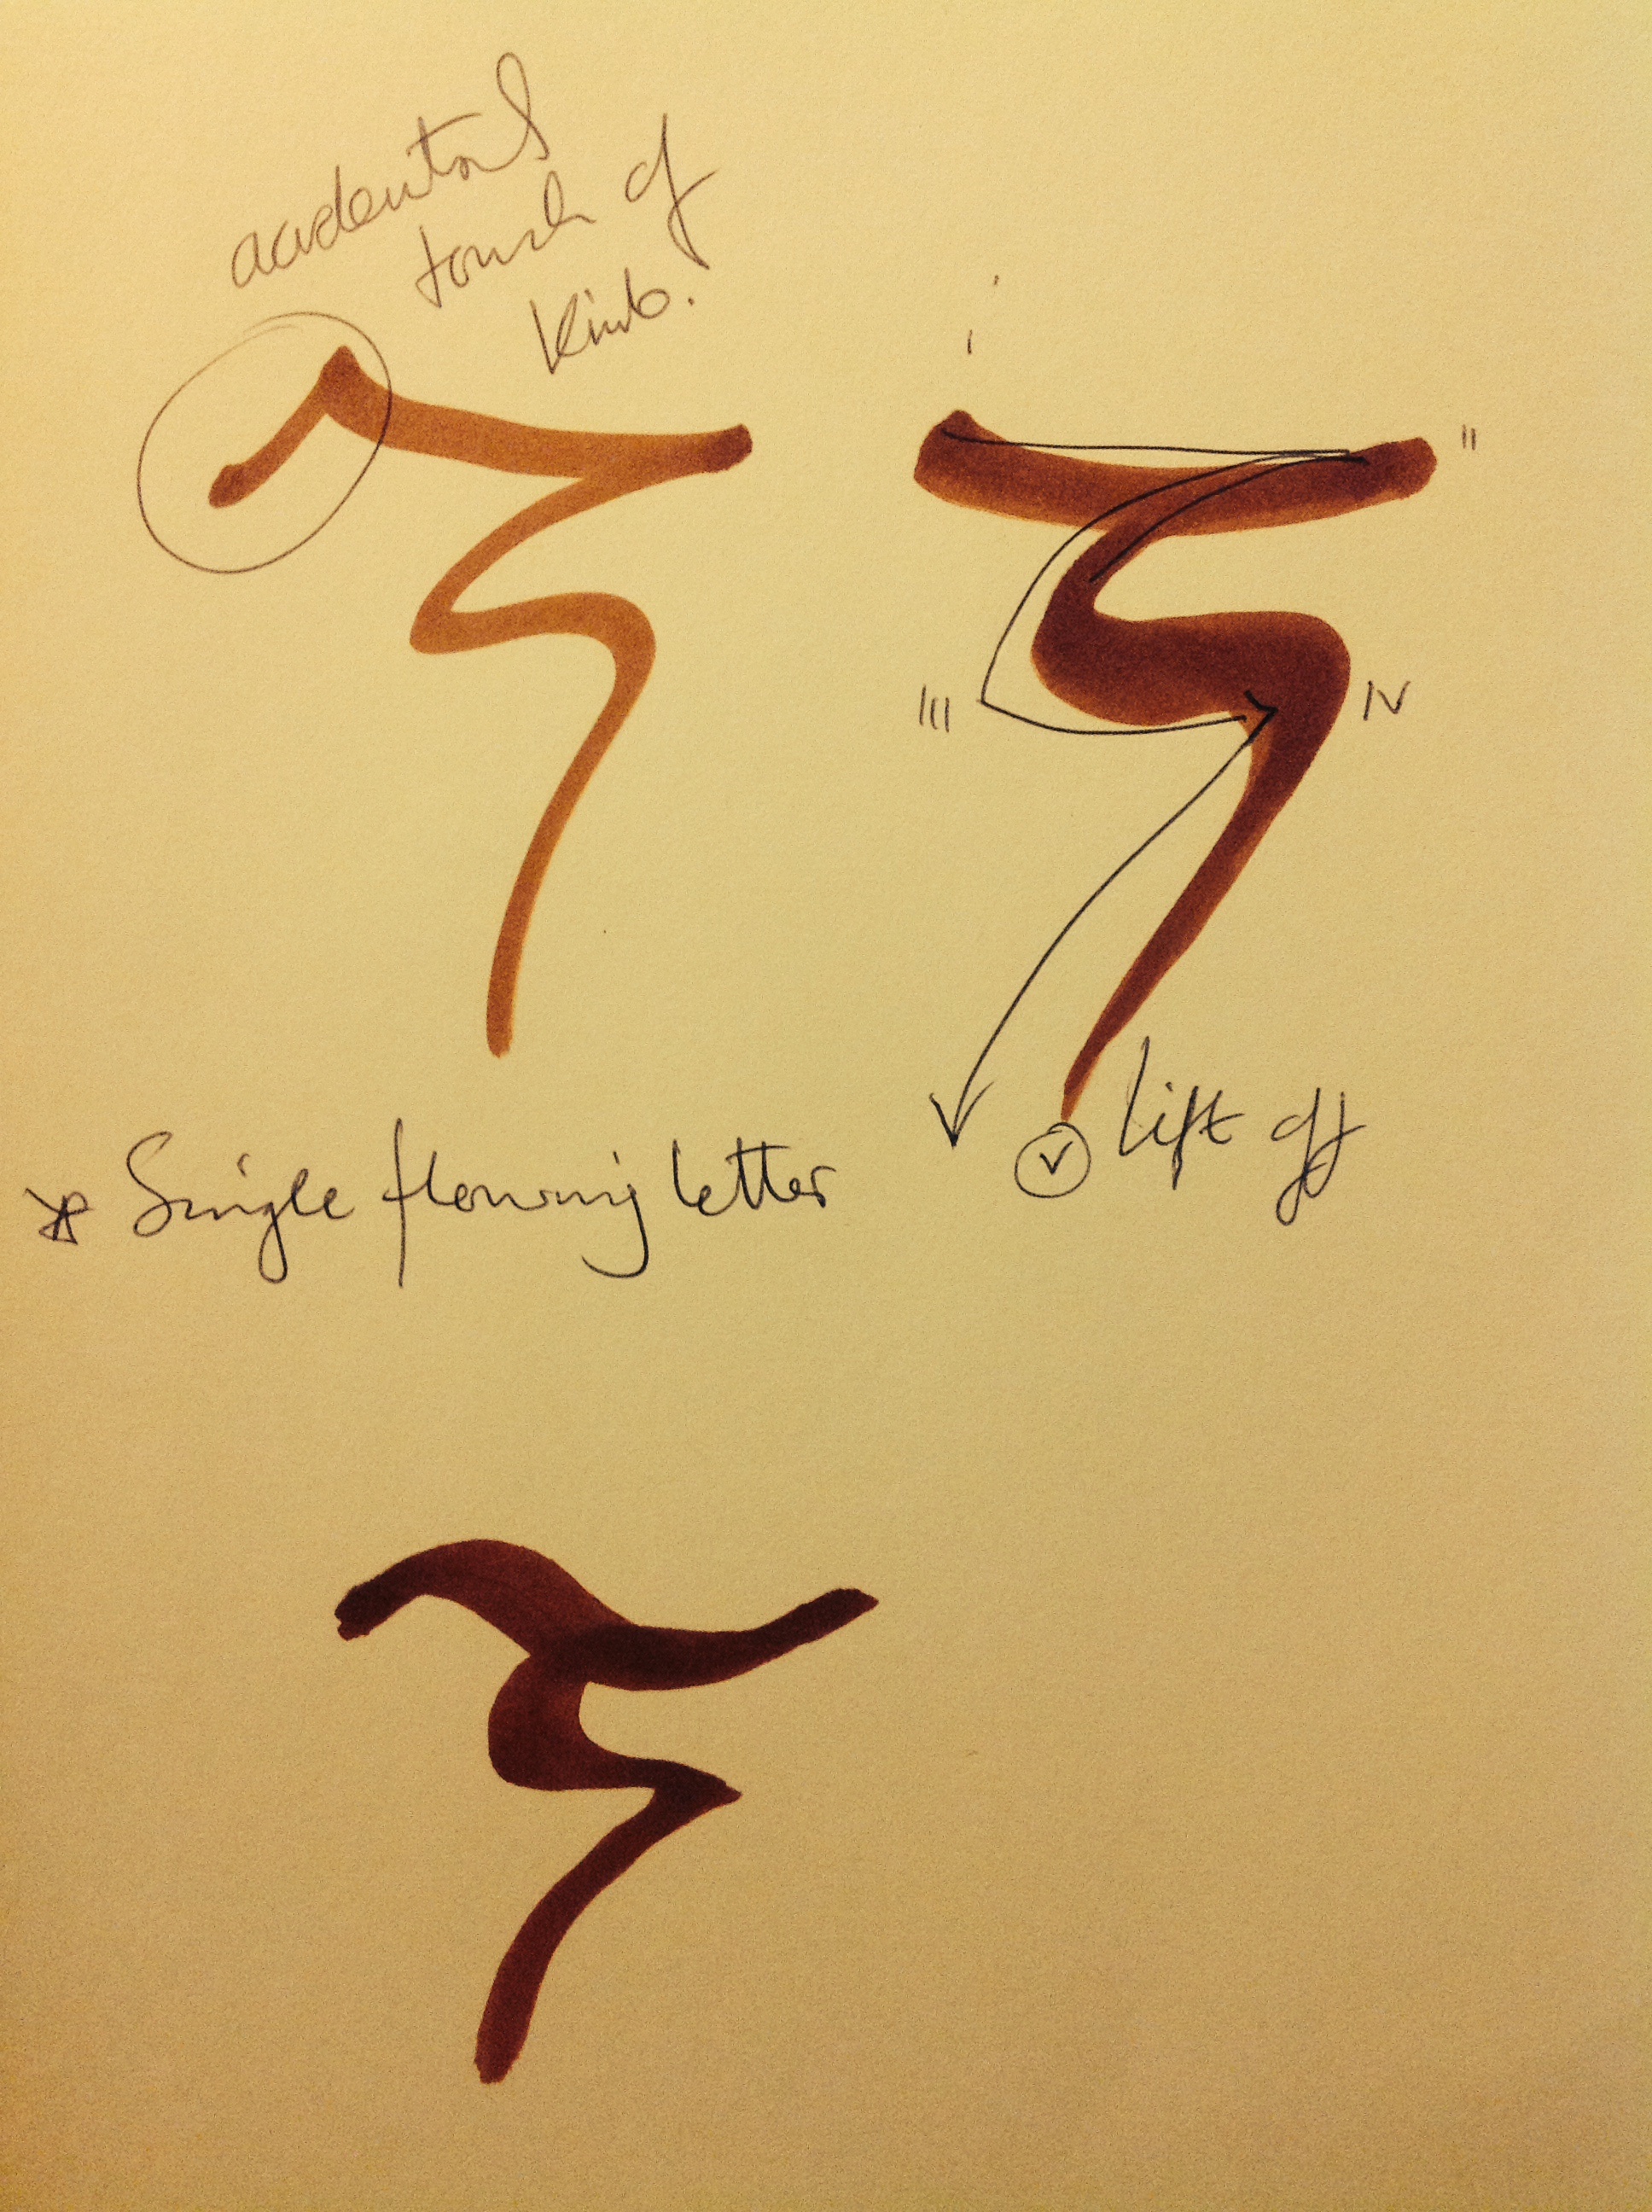 accidental
touch of
i
ii
iii
iv
v lift off
* Single flowing letter